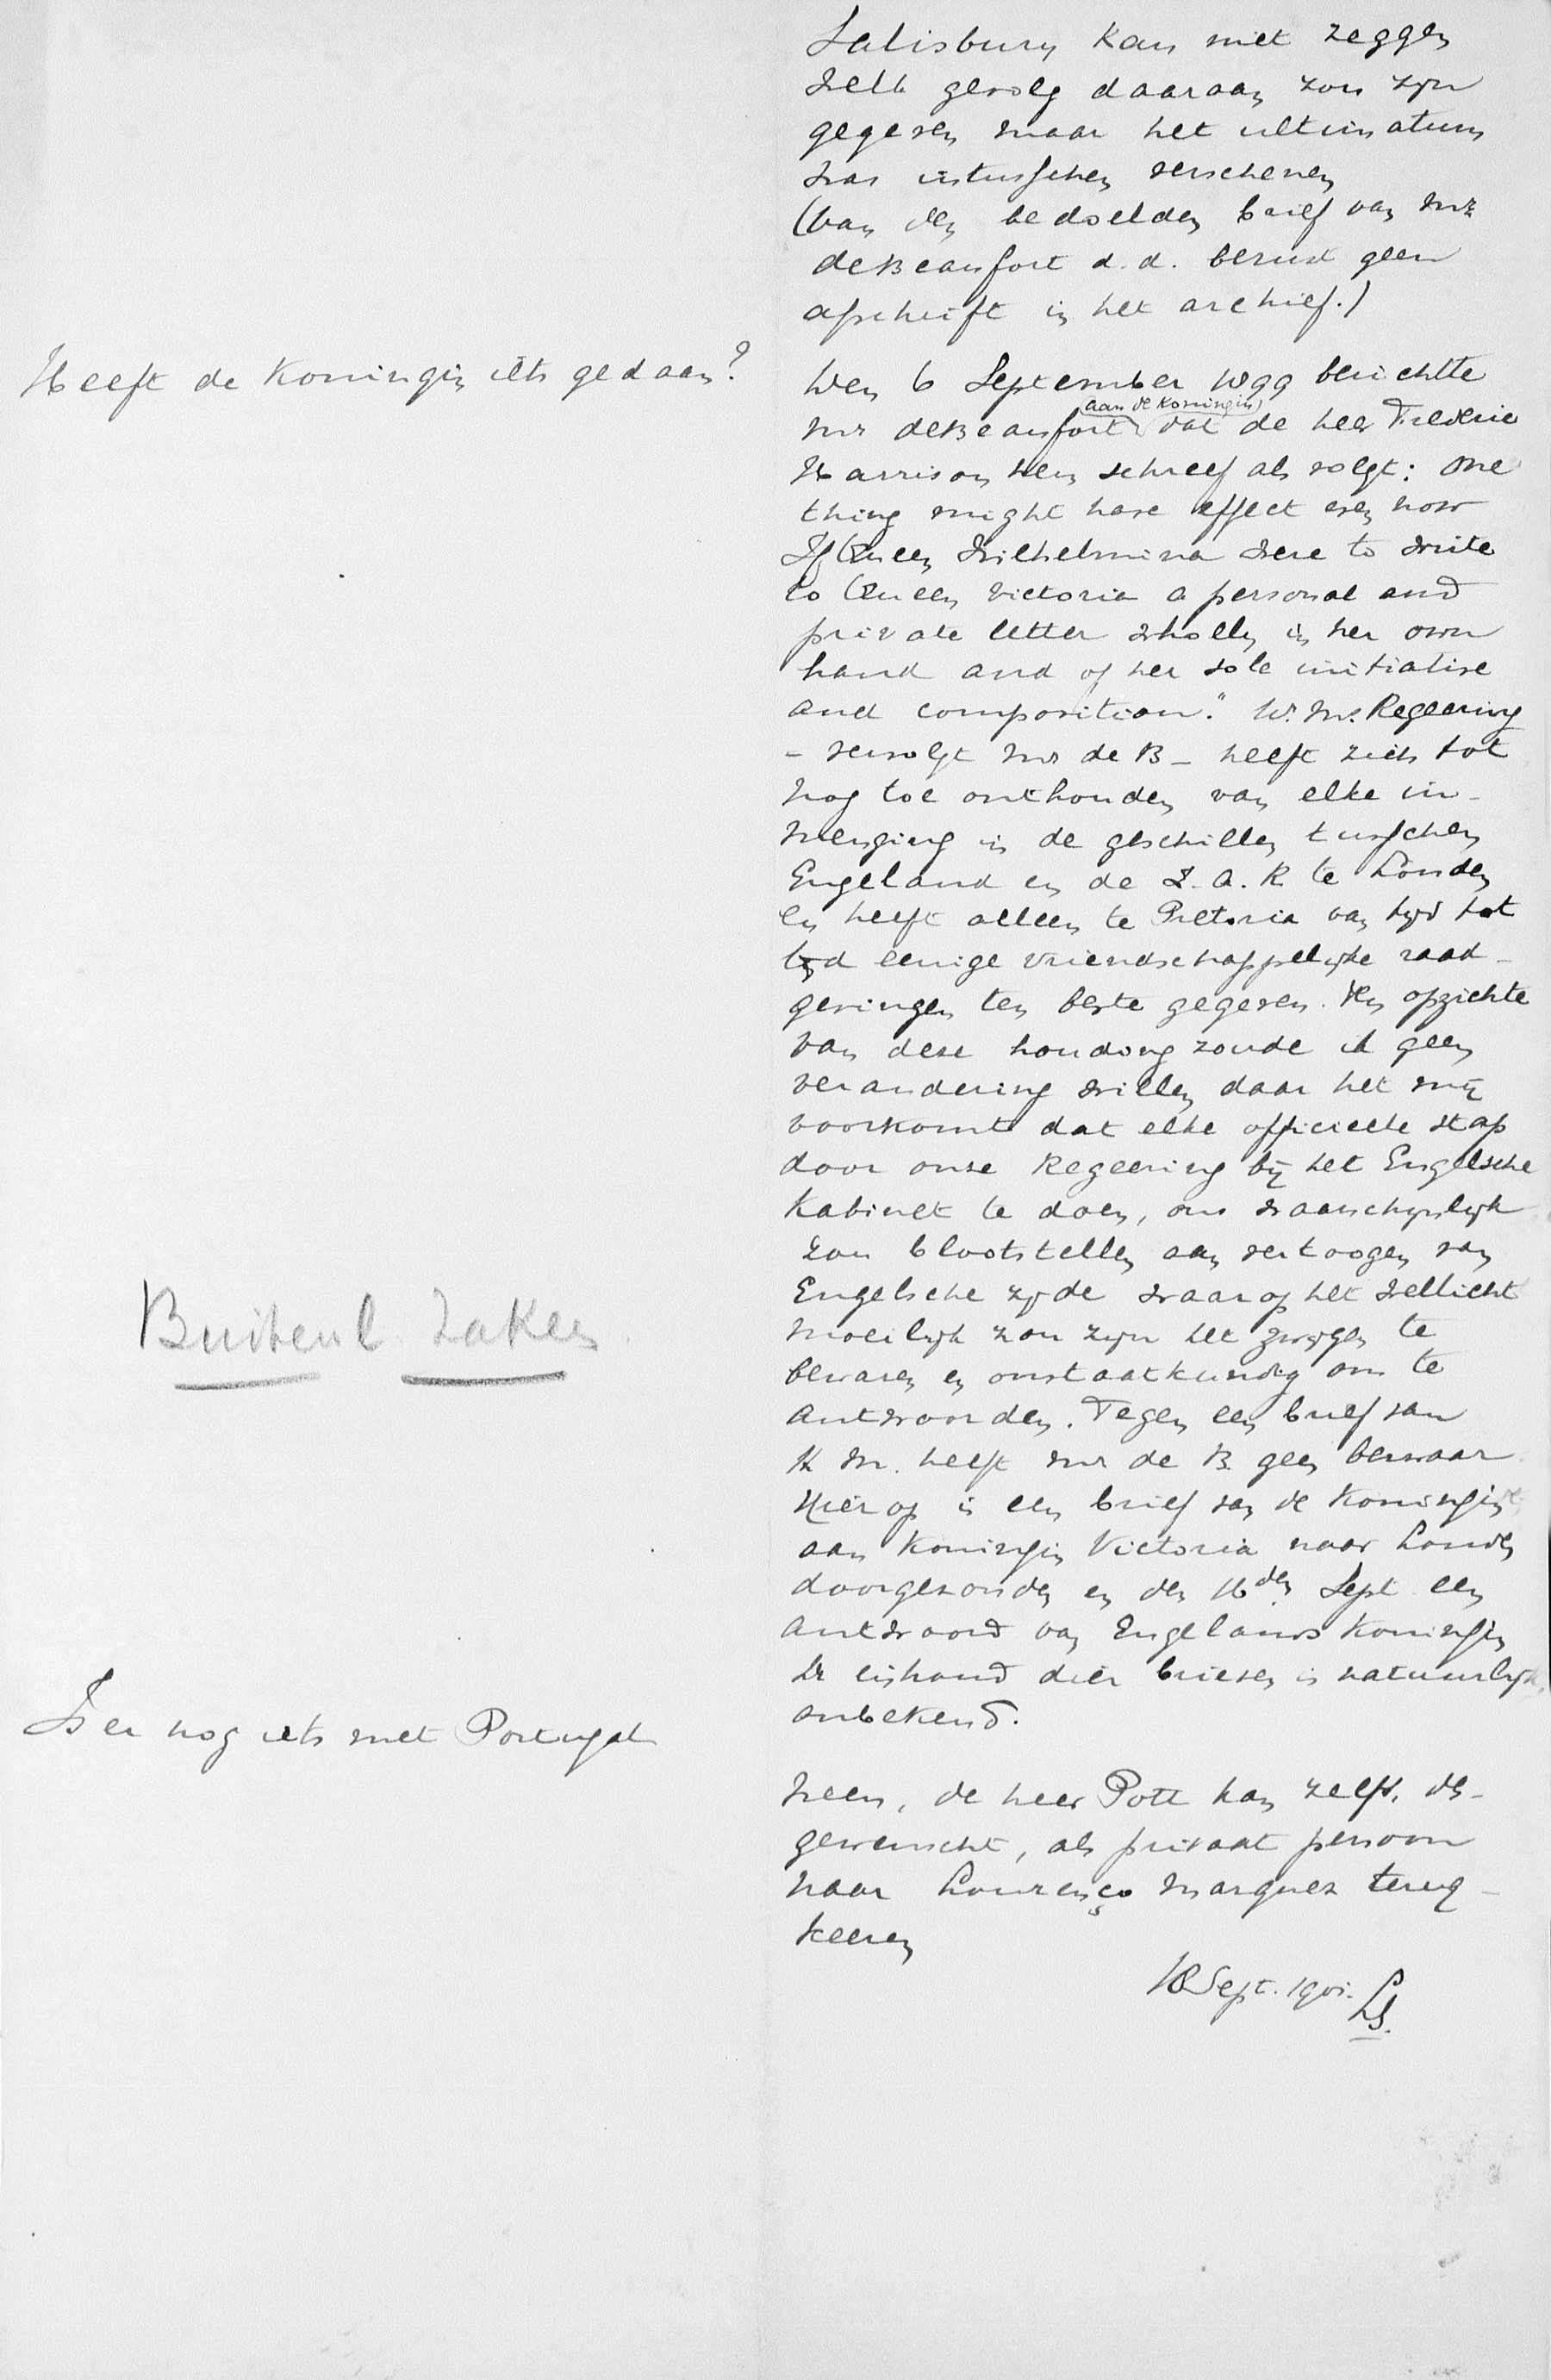 Salisbury kan niet zeggen
welk gevolg daaraan zou zyn
gegeven maar het ultimatum
was intusschen verschenen
(Van den bedoelden brief van Mr
de Beaufort d.d. berust geen
afschrift in het archief.)
Heeft de Koningin iets gedaan?
Den 6 September 1899 berichtte
Mr de Beaufort (aan de Koningin) dat de heer Frederic
Harrison hem schreef als volgt: One
thing might have effect even now
If Queen Wilhelmina were to write
to Queen Victoria a personal and
private letter wholly in her own
hand and of her sole initiative
and composition." U.M. Regeering
- vervolgt Mr de B - heeft zich tot
nog toe onthouden van elke in-
menging in de geschillen tusschen
Engeland en de Z.A.R. te Londen
en heeft alleen te Pretoria van tyd tot
tyd eenige vriendschappelyke raad-
gevingen ten beste gegeven. Ten opzichte
van deze houding zoude ik geen
verandering willen daar het mij
voorkomt dat elke officieele stap
door onze Regeering bij het Engelsche
Kabinet te doen, ons waarschynlyk
zou blootstellen aan vertoogen van
Engelsche zyde waarop het wellicht
moeilyk zou zyn het zwygen te
bewaren en onstaatkundig om te
antwoorden. Tegen een brief van
H.M. heeft Mr de B. geen bezwaar
Buitenl Zaken
Hierop is een brief van de Koningin
aan Koningin Victoria naar Londen
doorgezonden en den 16den Sept een
antwoord van Engelands Koningin
De inhoud dier brieven is natuurlyk
onbekend.
Is er nog iets met Portugal
Neen, de heer Pott kan zelfs, des-
gewenscht, als privaat persoon
naar Lourenço Marques terug-
keeren
18 Sept. 1901.